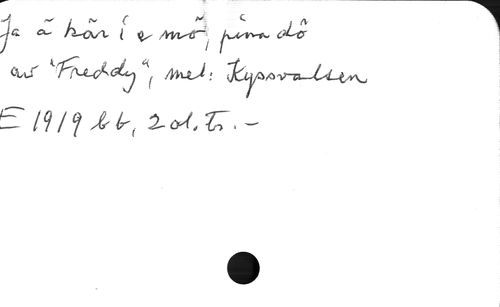 Ja ä kär i e mö, pina dö
av "Freddy", mel: Kyssvalsen
E 1919 bb, 2 ol. Tr. -